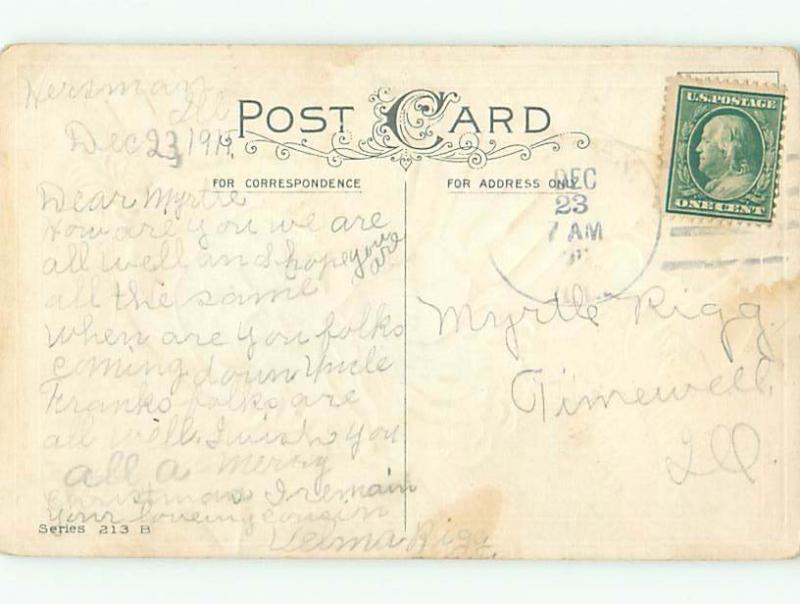 Hersman
Ill
Dec 23, 1915
POST CARD
FOR CORRESPONDENCE
FOR ADDRESS ONLY
U.S. POSTAGE
ONE CENT
DEC
23
7 AM
ILL.
Dear Myrtle
How are you we are
all well and hope you are
all the same
when are you folks
coming down Uncle
Franks folks are
all well. I wish you
all a Merry
Christmas I remain
your loveing cousin
Velma Rigg
Myrtle Rigg
Timewell
Ill.
Series 213 B